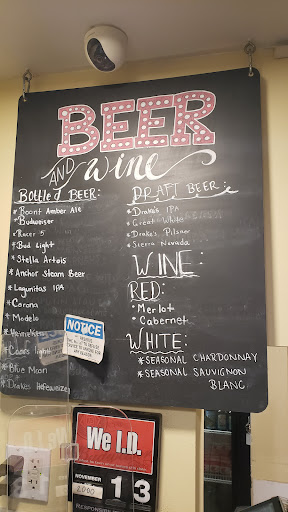 BEER
AND wine
Bottled BEER:
* Boont Amber Ale
* Budweiser
* Racer 5
* Bud Light
* Stella Artois
* Anchor Steam Beer
* Lagunitas IPA
* Corona
* Modelo
* Heineken
* Coors light
* Blue Moon
* Drakes Hefeweizen
DRAFT BEER:
* Drake's IPA
* Great White
* Drake's Pilsner
* Sierra Nevada
WINE:
RED:
• Merlot
• Cabernet
WHITE:
* SEASONAL CHARDONNAY
* SEASONAL SAUVIGNON
BLANC
NOTICE
We I.D.
NOVEMBER
2000
1 3